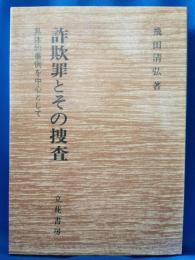 飛田清弘 著
詐欺罪とその捜査
具体的事例を中心として
立花書房